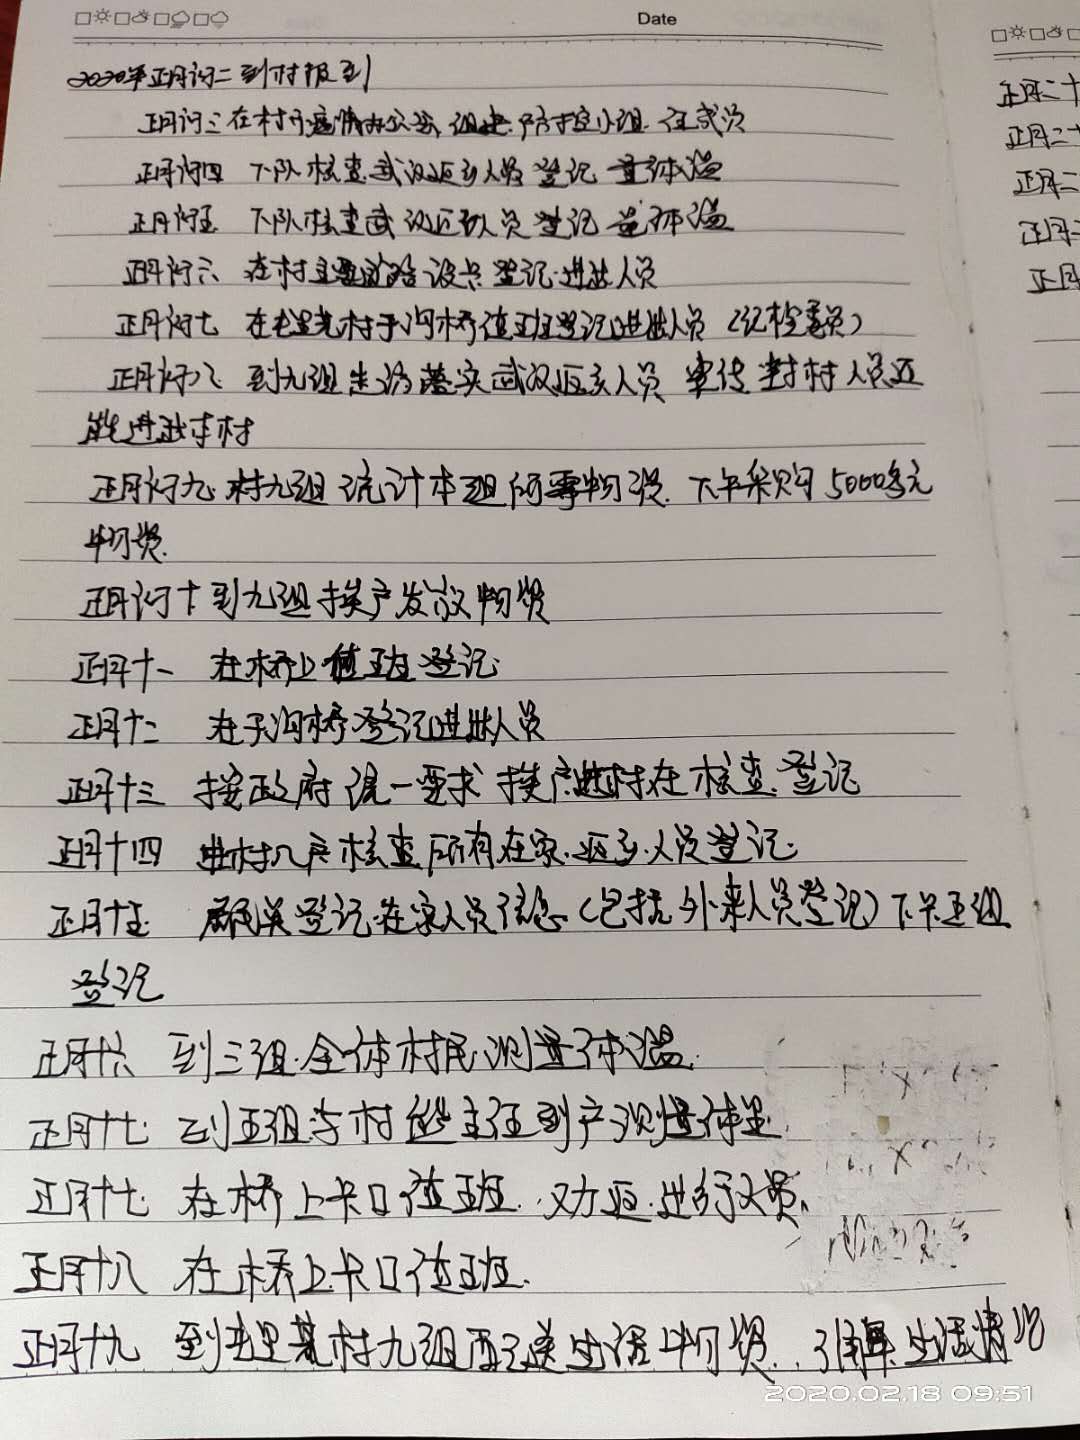 Date
2020年正月初二到村报到
正月初三在村 疫情办公室 组建 防控小组 任成员
正月初四 下队核查武汉返乡人员登记 量体温
正月初五 下队核查武汉返乡人员登记 量体温
正月初六 在村主要道路设卡登记进出人员
正月初七 在 村于沟桥值班登记进出人员(纪检委员)
正月初八 到九组 落实武汉返乡人员 宣传 村人员
能进 本村
正月初九 村九组统计本组所需物资 下午采购5000多元
物资.
正月初十到九组挨户发放物资
正月十一 在桥上值班登记
正月十二 在于沟桥登记进出人员
正月十三 按政府统一要求挨户进村在核查登记
正月十四 进村入户核查所有在家.返乡人员登记
正月十五 登记在家人员信息(包括外来人员登记)下午五组
登记
正月十六 到三组.全体村民测量体温.
正月十七 到五组与村 主任到户测量体温
正月十七 在桥上卡口值班.劝返.进行人员.
正月十八 在桥上卡口值班.
正月十九 到 村九组 送生活物资.. 生活情况
正月二十
正月二十
正月二
正月二
正月
2020.02.18 09:51